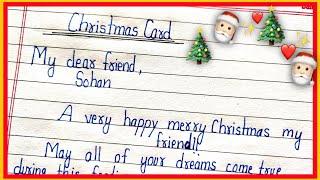 Christmas Card
My dear friend,
Sohan
A very happy merry Christmas my
friend!!
May all of your dreams come true
during this